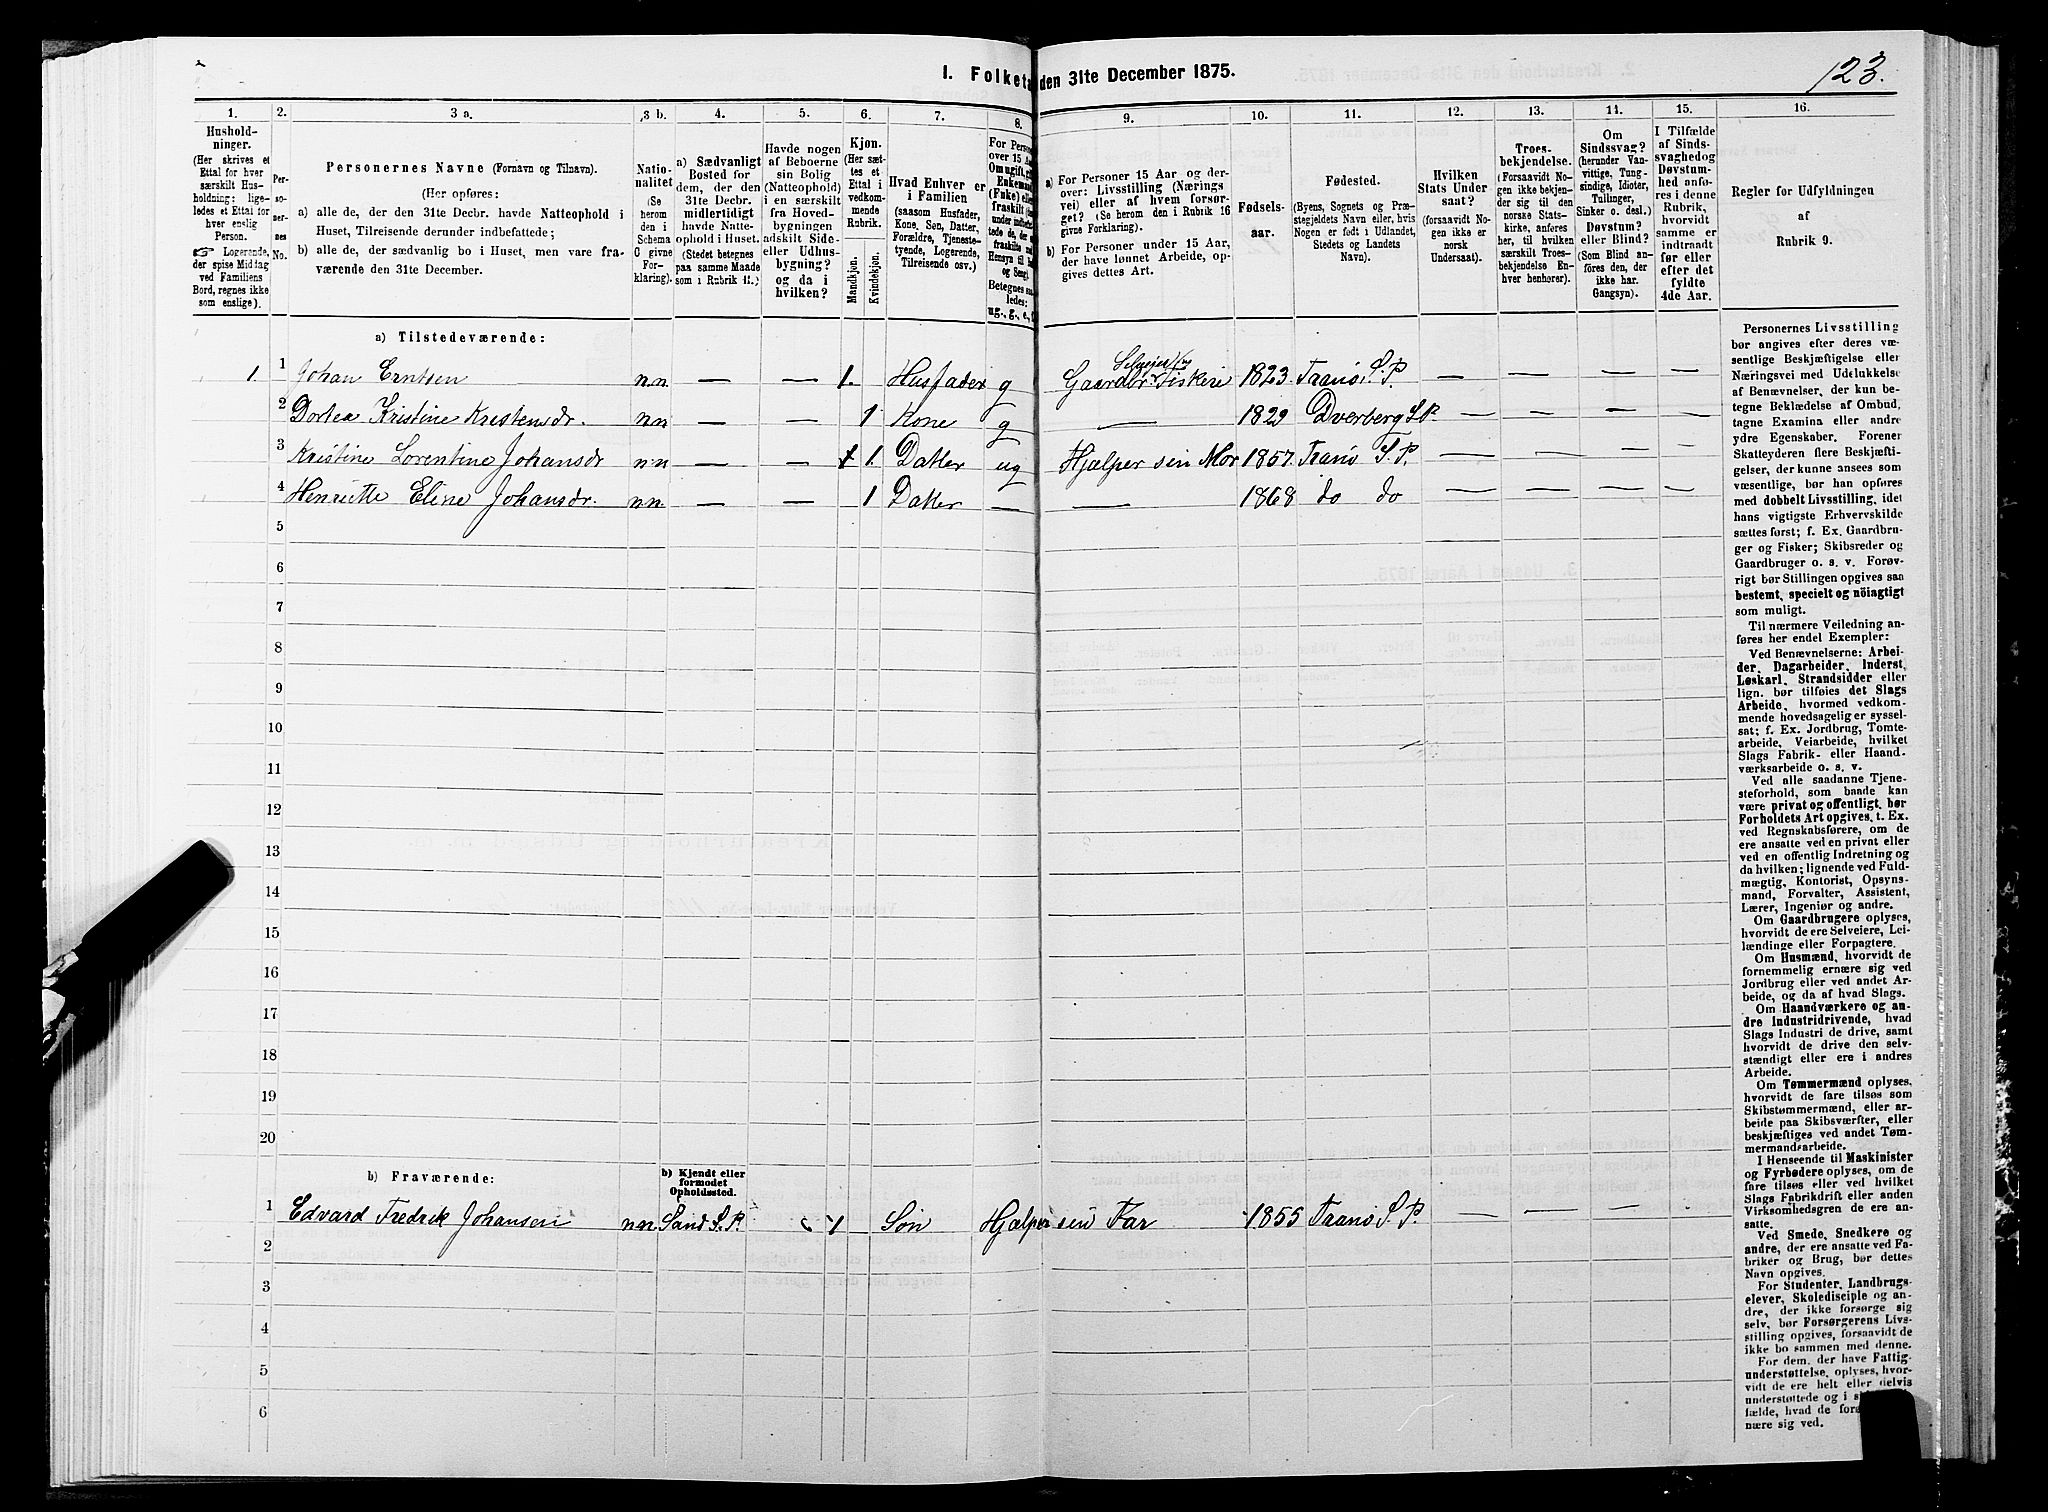 I. Folketæ den 31te December 1875.
123.
1. 2. 3 a. 3 b. 4. 5. 6. 7. 8. 9. 10. 11. 12. 13. 14. 15. 16.
Hushold-
ninger.
(Her skrives et
Ettal for hver
særskilt Hus-
holdning; lige-
ledes et Ettal for
hver enslig
Person.
☞ Logerende,
der spise Middag
ved Familiens
Bord, regnes ikke
som enslige).
Per-
so-
ner-
nes
No.
Personernes Navne (Fornavn og Tilnavn).
(Her opføres:
a) alle de, der den 31te Decbr. havde Natteophold i
Huset, Tilreisende derunder indbefattede;
b) alle de, der sædvanlig bo i Huset, men vare fra-
værende den 31te December.
Natio-
nalitet
(Se
herom
den i
Schema
C givne
For-
klaring).
a) Sædvanligt
Bosted for
dem, der den
31te Decbr.
midlertidigt
havde Natte-
ophold i Huset.
(Stedet betegnes
paa samme Maade
som i Rubrik 11.)
Havde nogen
af Beboerne
sin Bolig
(Natteophold)
i en særskilt
fra Hoved-
bygningen
adskilt Side-
eller Udhus-
bygning?
og da i
hvilken?
Kjøn.
(Her sæt-
tes et
Ettal i
vedkom-
mende
Rubrik.
Mandkjøn.
Kvindekjøn.
Hvad Enhver er
i Familien
(saasom Husfader,
Kone, Søn, Datter,
Forældre, Tjeneste-
tyende, Logerende,
Tilreisende osv.)
For Person
over 15 Aar
Om ugift, gi
Enkemand
(Enke) elle
fraskilt
under indbefat-
tede de, der e
fraskilte med
Hensyn til
og Seng
Betegnes saa-
ledes:
ug., g., e.,
a) For Personer 15 Aar og der-
over: Livsstilling (Nærings
vei) eller af hvem forsør-
get? (Se herom den i Rubrik 16
givne Forklaring).
b) For Personer under 15 Aar,
der have lønnet Arbeide, op-
gives dettes Art.
Fødsels-
aar.
Fødested.
(Byens, Sognets og Præ-
stegjeldets Navn eller, hvis
Nogen er født i Udlandet,
Stedets og Landets
Navn).
Hvilken
Stats Under
saat?
(forsaavidt No-
gen ikke er
norsk
Undersaat).
Troes-
bekjendelse.
(Forsaavidt No-
gen ikke bekjen-
der sig til den
norske Stats-
kirke, anføres
her, til hvilken
særskilt Troes-
bekjendelse En-
hver henhører).
Om
Sindssvag?
(herunder Van-
vittige, Tung-
sindige, Idioter,
Tullinger,
Sinker o. desl.)
Døvstum?
eller Blind?
(Som Blind an-
føres den, der
ikke har
Gangsyn).
I Tilfælde
af Sinds-
svaghedog
Døvstum-
hed anfø-
res i denne
Rubrik,
hvorvidt
samme er
indtraadt
før eller
efter det
fyldte
4de Aar.
Regler for Udfyldningen
af
Rubrik 9.
a) Tilstedeværende:
1. 1 Johan Erntsen n.n. — — 1. Husfader g Gaardbr Selveier Fiskeri 1823 Tranø S.P. — — — —
2 Dortea Kristine Kristensdr. n.n — — 1 Kone g — 1829 Dverberg S.P. — — — —
3 Kristine Lorentine Johansdr n.n — — 1. Datter ug Hjælper sin Mor 1857. Tranø S.P. — — — —
4 Henriette Eline Johansdr. n.n. — — 1 Datter — — 1868 do do — — — —
5
6
7
8
9
10
11
12
13
14
15
16
17
18
19
20
b) Fraværende:
b) Kjendt eller
formodet
Opholdssted.
1 Edvard Fredrik Johansen n.n. Sand S.P. 1 Søn Hjælper sin Far 1855 Tranø S.P. — — — —
2
3
4
5
6
Personernes Livsstilling
bør angives efter deres væ-
sentlige Beskjæftigelse eller
Næringsvei med Udelukkelse
af Benævnelser, der kun be-
tegne Beklædelse af Ombud,
tagne Examina eller andre
ydre Egenskaber. Forener
Skatteyderen flere Beskjæfti-
gelser, der kunne ansees som
væsentlige, bør han opføres
med dobbelt Livsstilling, idet
hans vigtigste Erhvervskilde
sættes først; f. Ex. Gaardbru-
ger og Fisker; Skibsreder og
Gaardbruger o. s. v. Forøv-
rigt bør Stillingen opgives saa
bestemt, specielt og nöiagtigt
som muligt.
Til nærmere Veiledning an-
føres her endel Exempler:
Ved Benævnelserne: Arbei-
der, Dagarbeider, Inderst,
Løskarl, Strandsidder eller
lign. bør tilføies det Slags
Arbeide, hvormed vedkom-
mende hovedsagelig er syssel-
sat; f. Ex. Jordbrug, Tømte-
arbeide, Veiarbeide, hvilket
Slags Fabrik- eller Haand-
værksarbeide o. s. v.
Ved alle saadanne Tjene-
steforhold, som baade kan
være privat og offentligt, bør
Forholdets Art opgives, t. Ex.
ved Regnskabsførere, om de
ere ansatte ved en privat eller
ved en offentlig Indretning og
da hvilken; lignende ved Fuld-
mægtig, Kontorist, Opsyns-
mand, Forvalter, Assistent,
Lærer, Ingeniør og andre.
Om Gaardbrugere oplyses,
hvorvidt de ere Selveiere, Lei-
lændinge eller Forpagtere.
Om Husmænd, hvorvidt de
fornemmelig ernære sig ved
Jordbrug eller ved andet Ar-
beide, og da af hvad Slags.
Om Haandværkere og an-
dre Industridrivende, hvad
Slags Industri de drive, samt
hvorvidt de drive den selv-
stændigt eller ere i andres
Arbeide.
Om Tømmermænd oplyses,
hvorvidt de fare tilsøs som
Skibstømmermænd, eller ar-
beide paa Skibsværfter, eller
beskjæftiges ved andet Tøm-
mermandsarbeide.
I Henseende til Maskinister
og Fyrbødere oplyses, om de
fare tilsøs eller ved hvilket
Slags Fabrikdrift eller anden
Virksomhedsgren de ere an-
satte.
Ved Smede, Snedkere og
andre, der ere ansatte ved Fa-
briker og Brug, bør dettes
Navn opgives.
For Studenter, Landbrugs-
elever, Skoledisciple og an-
dre, der ikke forsørge sig
selv, bør Forsørgerens Livs-
stilling opgives, forsaavidt de
ikke bo sammen med denne.
For dem, der have Fattig-
understøttelse, oplyses, hvor-
vidt de ere helt eller delvis
understøttede og i s
fælde, hvad de forø
nære sig ved.